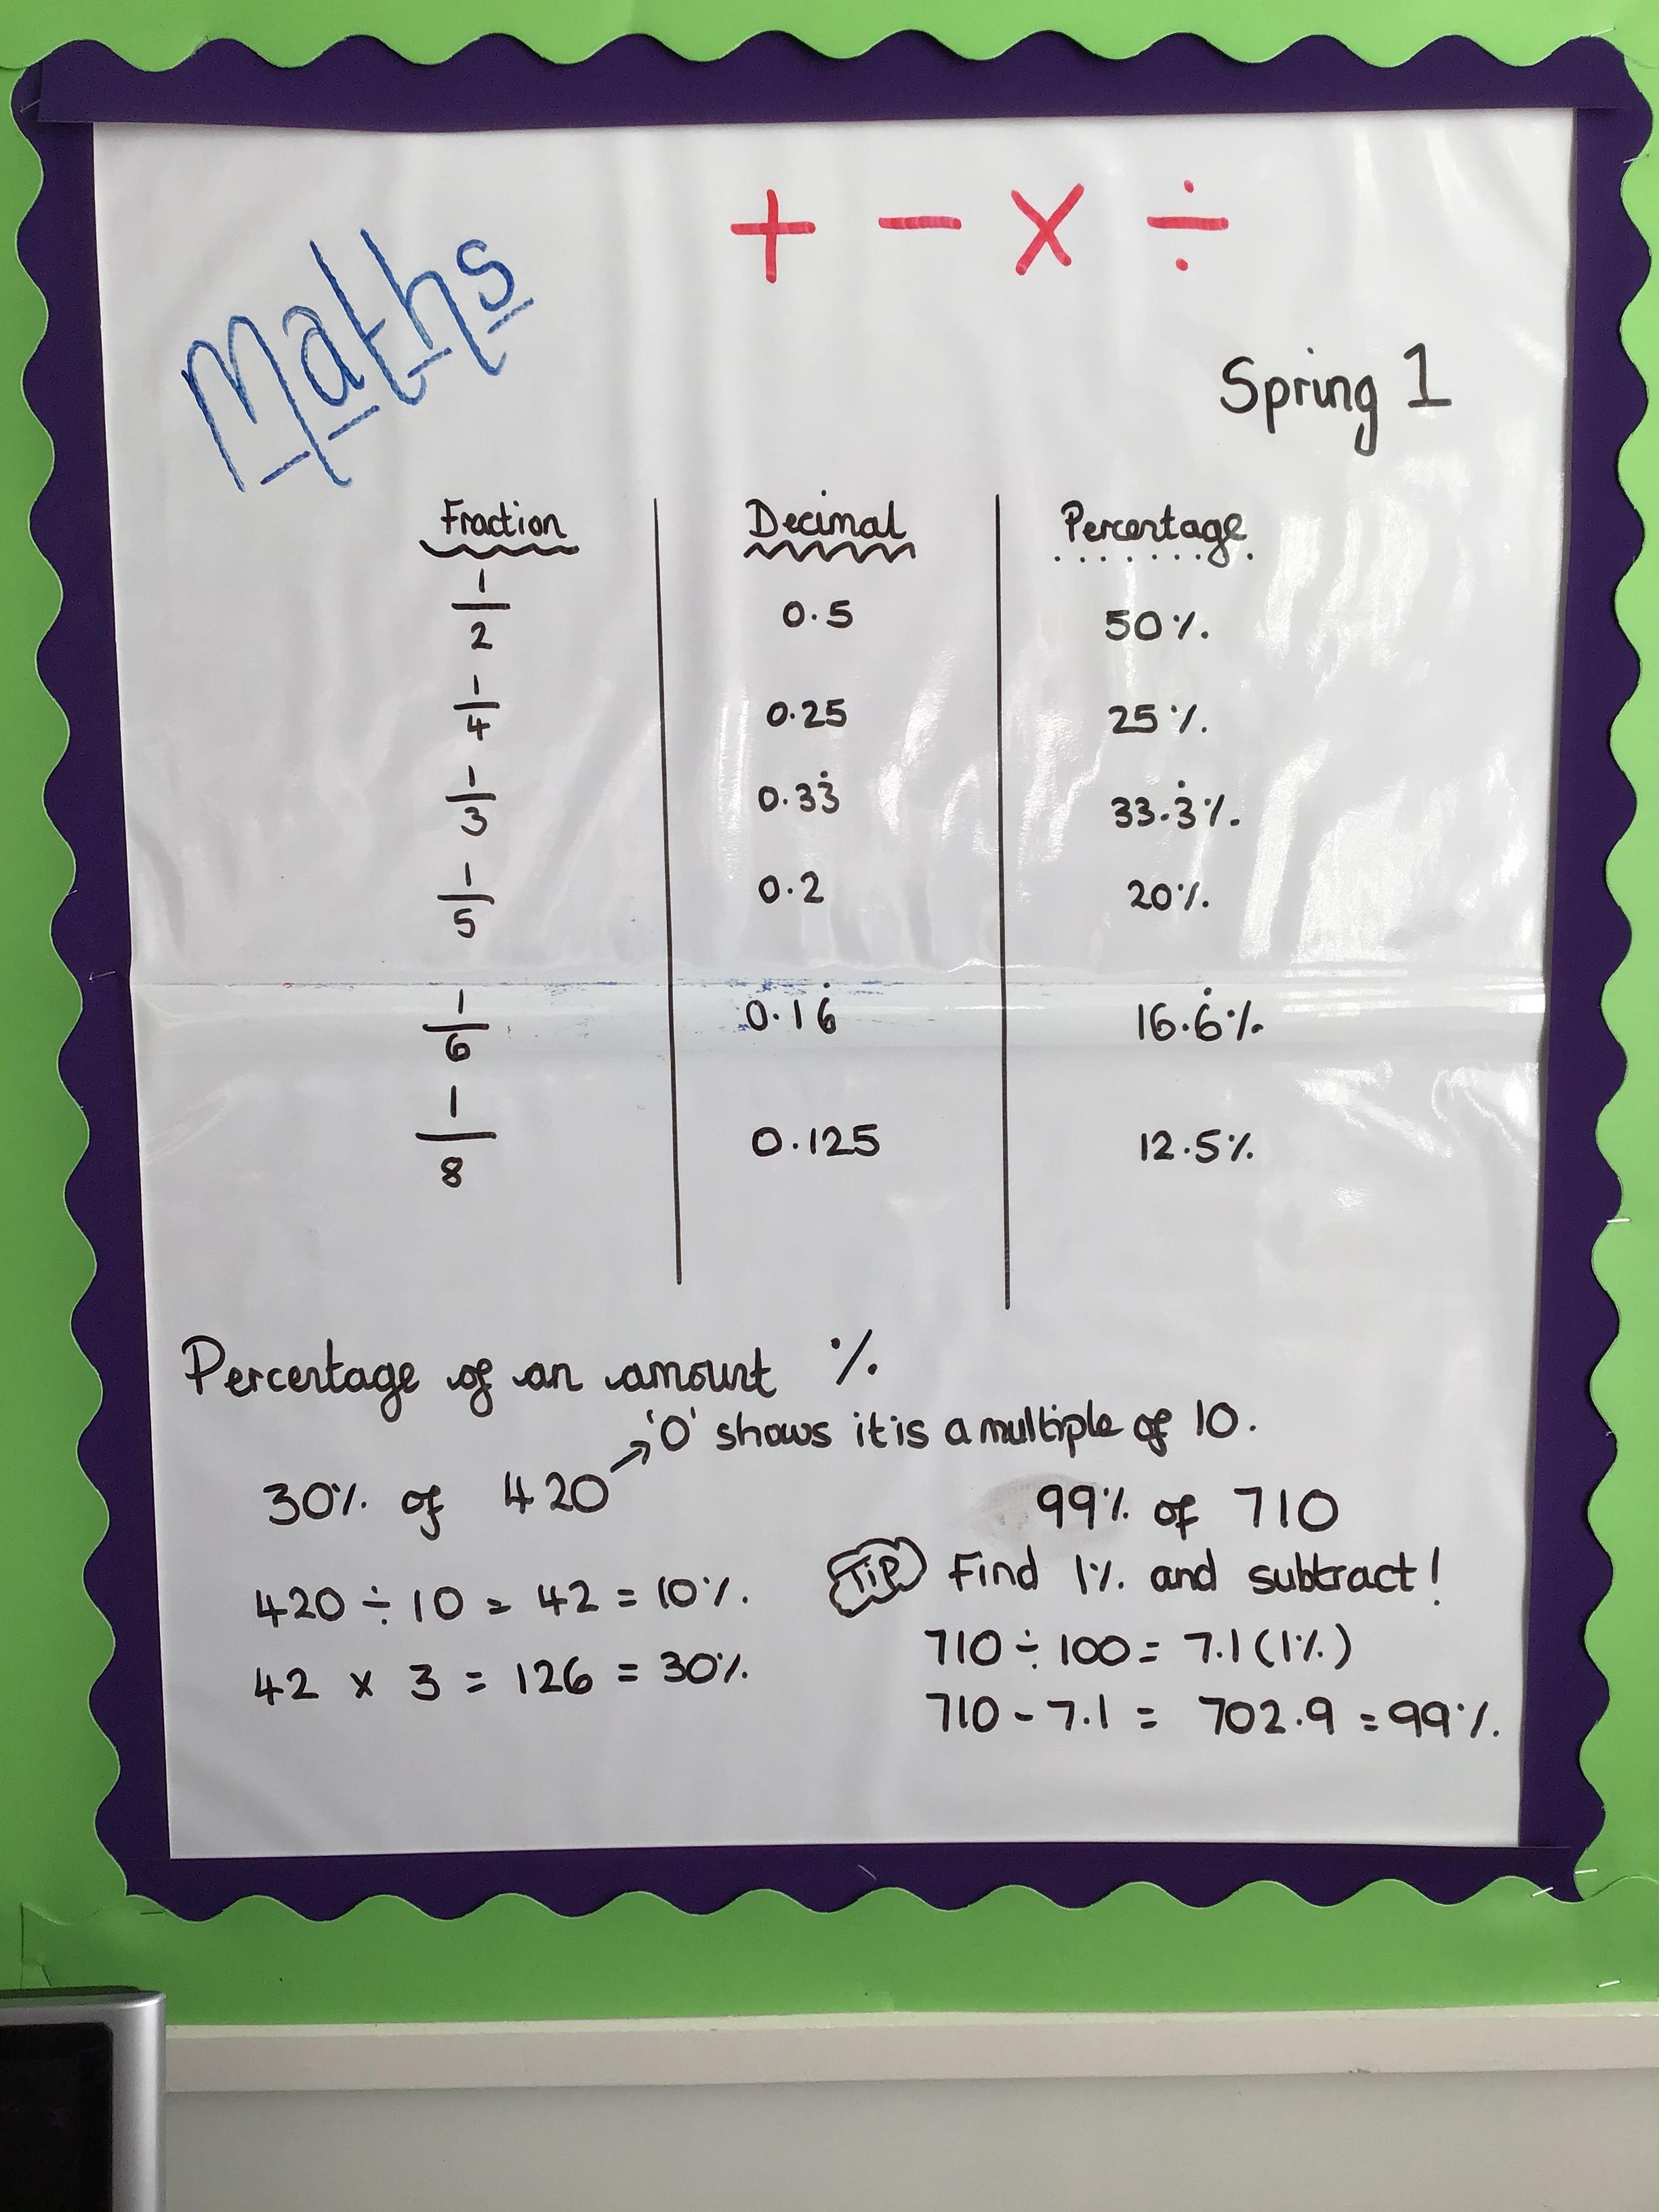 + - × ÷
Maths
Spring 1
Fraction Decimal Percentage
1/2 0.5 50%
1/4 0.25 25%
1/3 0.33̇ 33.3̇%
1/5 0.2 20%
1/6 0.16̇ 16.6̇%
1/8 0.125 12.5%
Percentage of an amount %
'0' shows it is a multiple of 10.
30% of 420
420 ÷ 10 = 42 = 10%.
42 × 3 = 126 = 30%
99% of 710
TIP Find 1% and subtract!
710 ÷ 100 = 7.1 (1%)
710 - 7.1 = 702.9 = 99%.